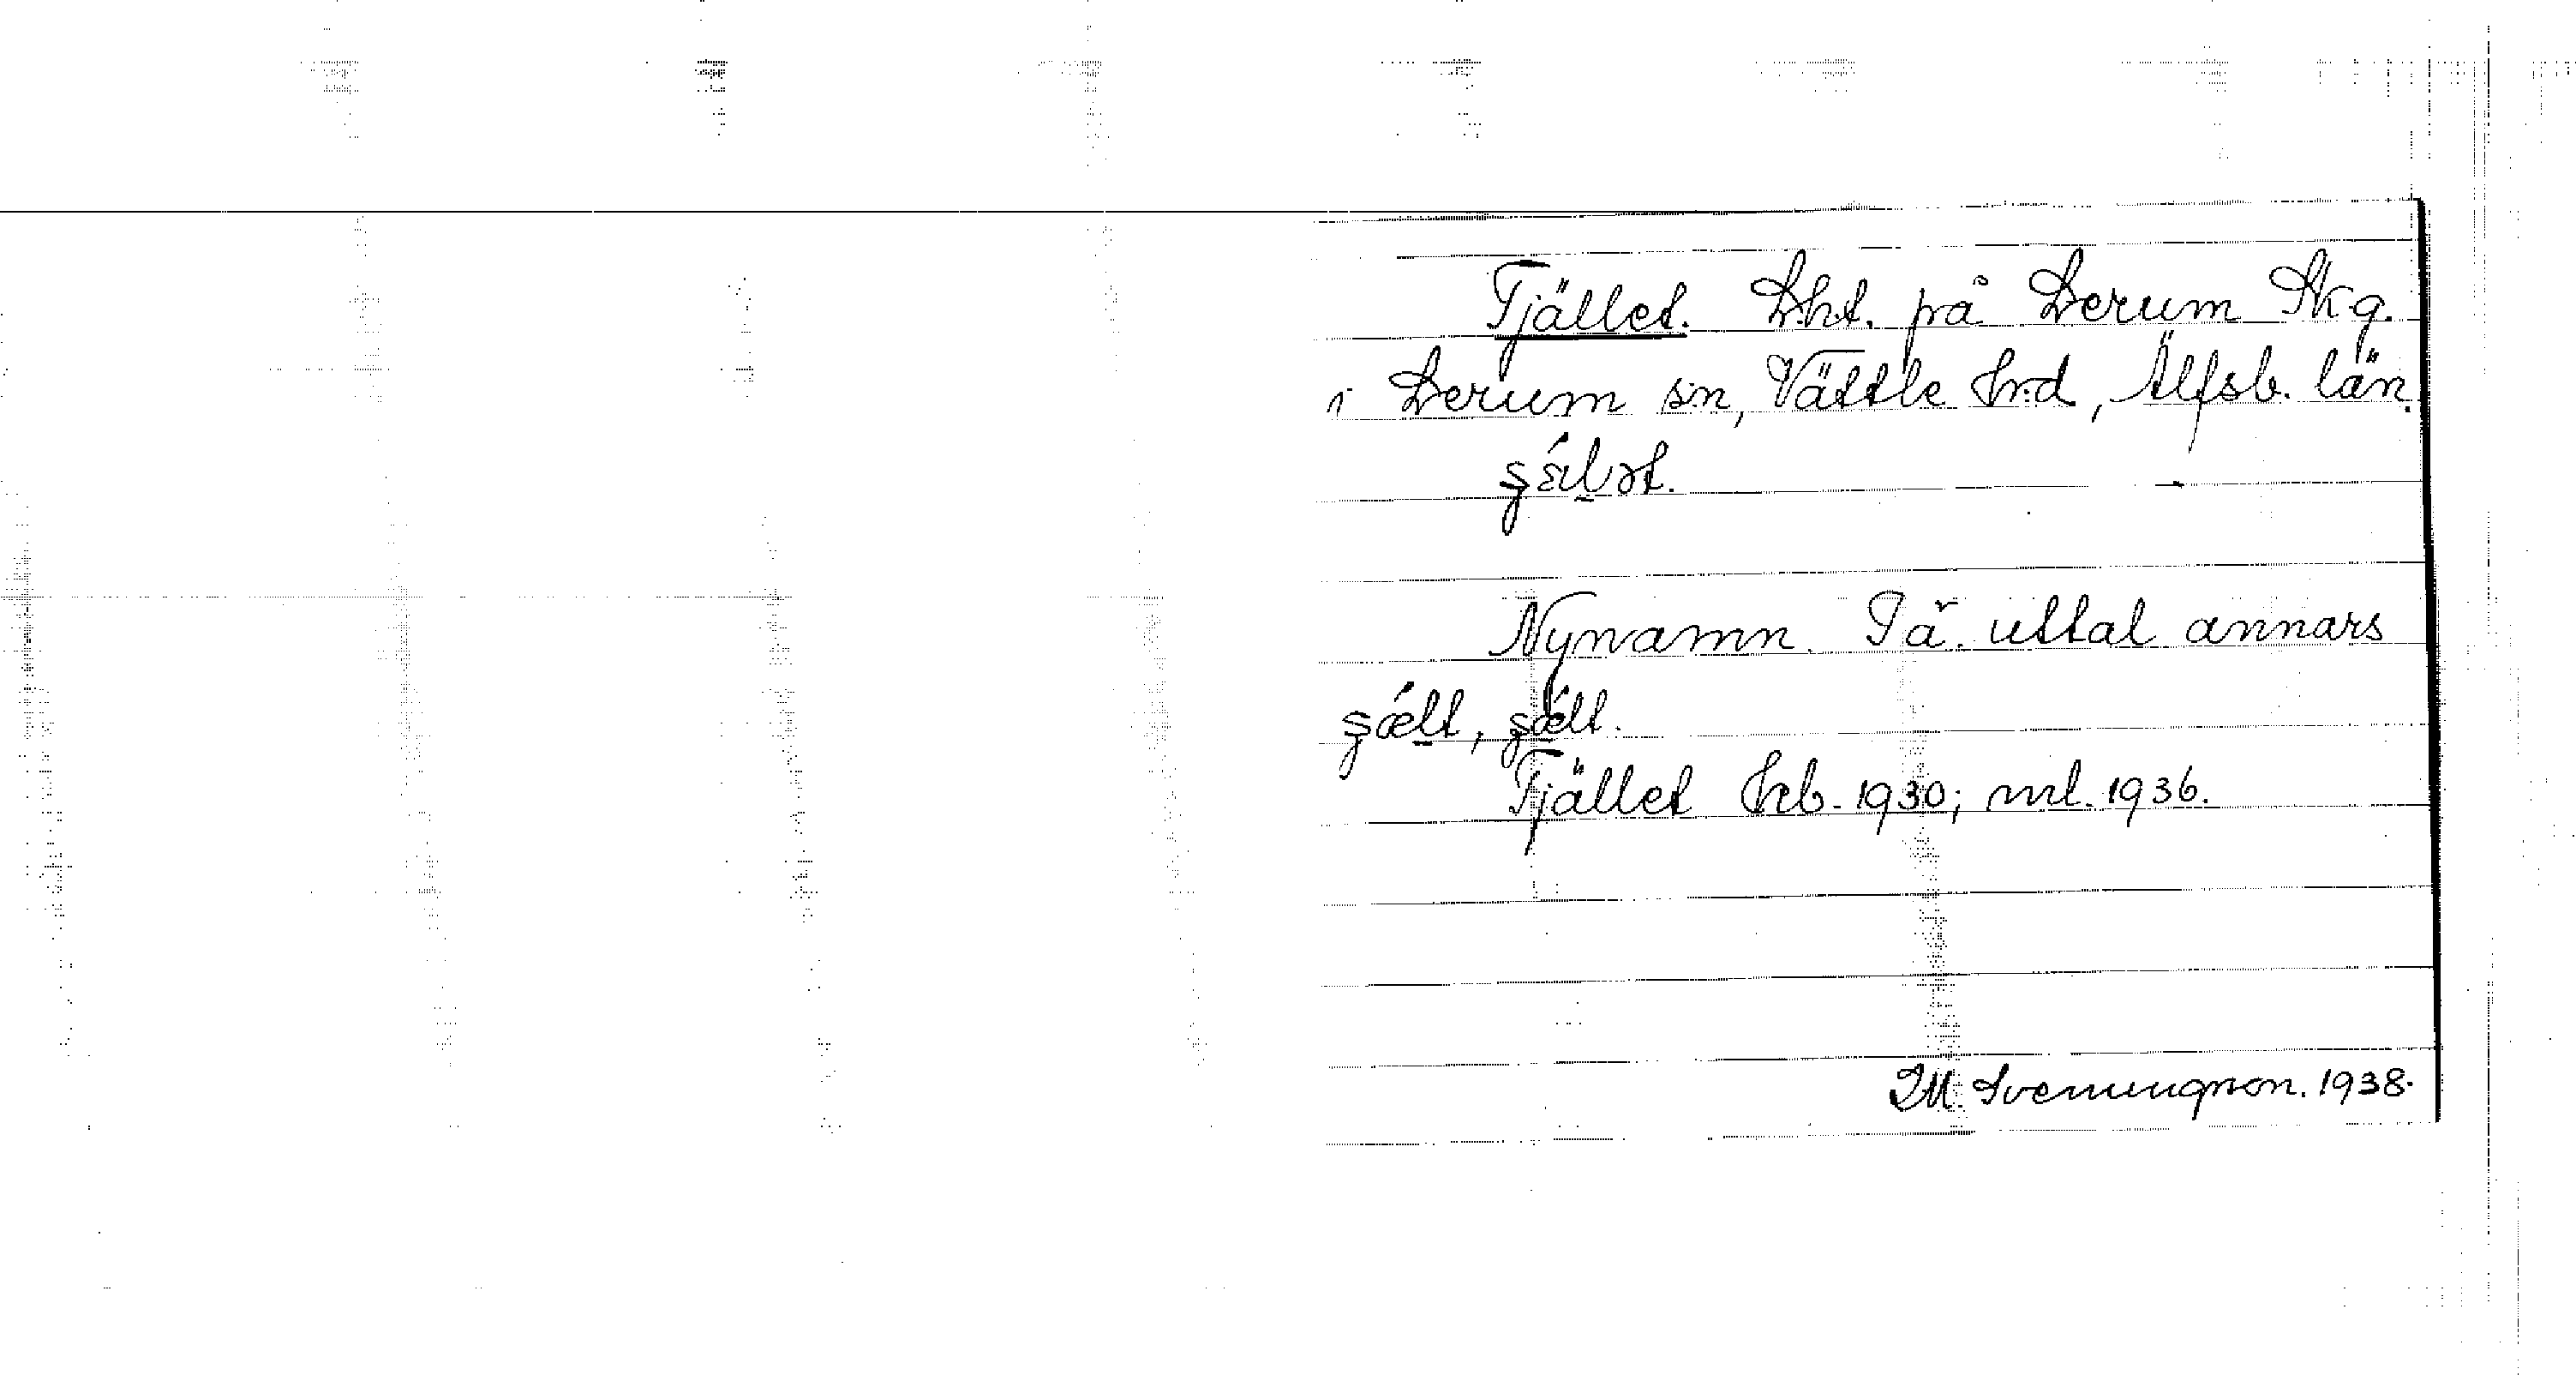 Tjället. Lht. på Lerum Skg.
i Lerum sn, Vättle hrd, Älfsb. län.
ʂɛ́lət.
Nynamn. uttal annars
ʂǽlt, ʂǽlt.
Tjället 1930; ml. 1936.
Svenungson. 1938.